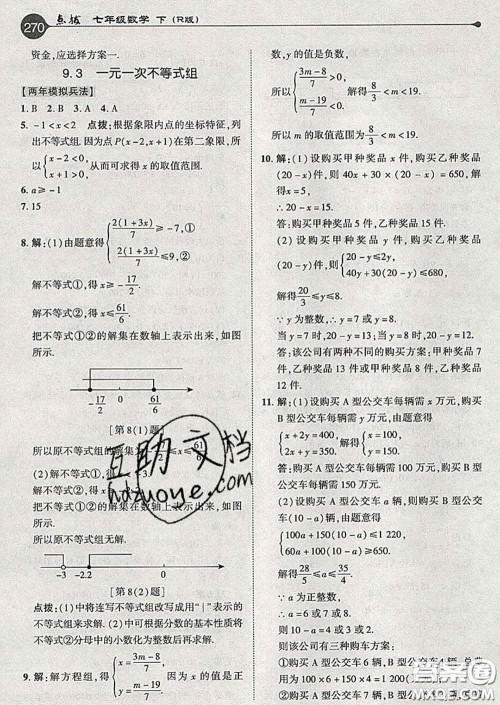 270 点拨 七年级数学 下 (R版)
资金,应选择方案一.
9.3 一元一次不等式组
【两年模拟兵法】
1. B 2. B 3. A 4. A
5. -1<x<2 点拨:根据象限内点的坐标特征,列
出不等式组.因为点P(x-2,x+1)在第二象限,所
以{x-2<0, x+1>0, 从而可求得 x 的取值范围.
6. a≥-1
7. 15
8. 解:(1)由题意得{2(1+3x)/7≥-7,① 2(1+3x)/7≤9,②
解不等式①,得 x≥-17/2.
解不等式②,得 x≤61/6.
把不等式①②的解集在数轴上表示出来,如图
所示.
-17/2 0 61/6
[第8(1)题]
所以原不等式组的解集为-17/2≤x≤61/6.
所以原不等式组无解.
-3 -2.2 0
[第8(2)题]
点拨:(1)中将连写不等式组改写成用"{"表示的
不等式组来求解.(2)中可根据分数的基本性质将
不等式②分母中的小数化为整数后再求解.
9. 解:解方程组,得{x=(3m-8)/7, y=(m-19)/7. 因为 x 的值是正
所以{(3m-8)/7>0, (m-19)/7<0. 解得8/3<m<19.
所以 m 的取值范围为8/3<m<19.
10. 解:(1)设购买甲种奖品 x 件,购买乙种奖品
(20-x)件,则有 40x+30×(20-x)=650,解
得x=5.
∴20-x=15.
答:购买甲种奖品 5 件,乙种奖品 15 件.
(2)设购买甲种奖品 y 件,购买乙种奖品(20-y)
件,根据题意得{20-y≤2y, 40y+30(20-y)≤680.
解得20/3≤y≤8.
∵y 为整数,∴y=7 或 y=8.
当 y=7 时,20-y=13;当 y=8 时,20-y=12.
答:该公司有两种不同的购买方案:甲种奖品7
件,乙种奖品 13 件或甲种奖品 8 件,乙种奖品
12 件.
11. 解:(1)设购买 A 型公交车每辆需 x 万元,购买
B 型公交车每辆需 y 万元,由题意得
{x+2y=400, 2x+y=350, 解得{x=100, y=150.
答:购买 A 型公交车每辆需 100 万元,购买 B 型
公交车每辆需 150 万元.
(2)设购买 A 型公交车 a 辆,则购买 B 型公交
车(10-a)辆,由题意得
{100a+150(10-a)≤1 220, 60a+100(10-a)≥650,
解得28/5≤a≤35/4.
∵a 为正整数,
∴a=6,7,8.
则(10-a)=4,3,2.
所以该公司有三种购车方案:
①购买 A 型公交车 6 辆,B 型公交车 4 辆,总费
用为 100×6+150×4=1 200(万元);
②购买 A 型公交车 7 辆,B 型公交车
互助文档
hdzuoye.com